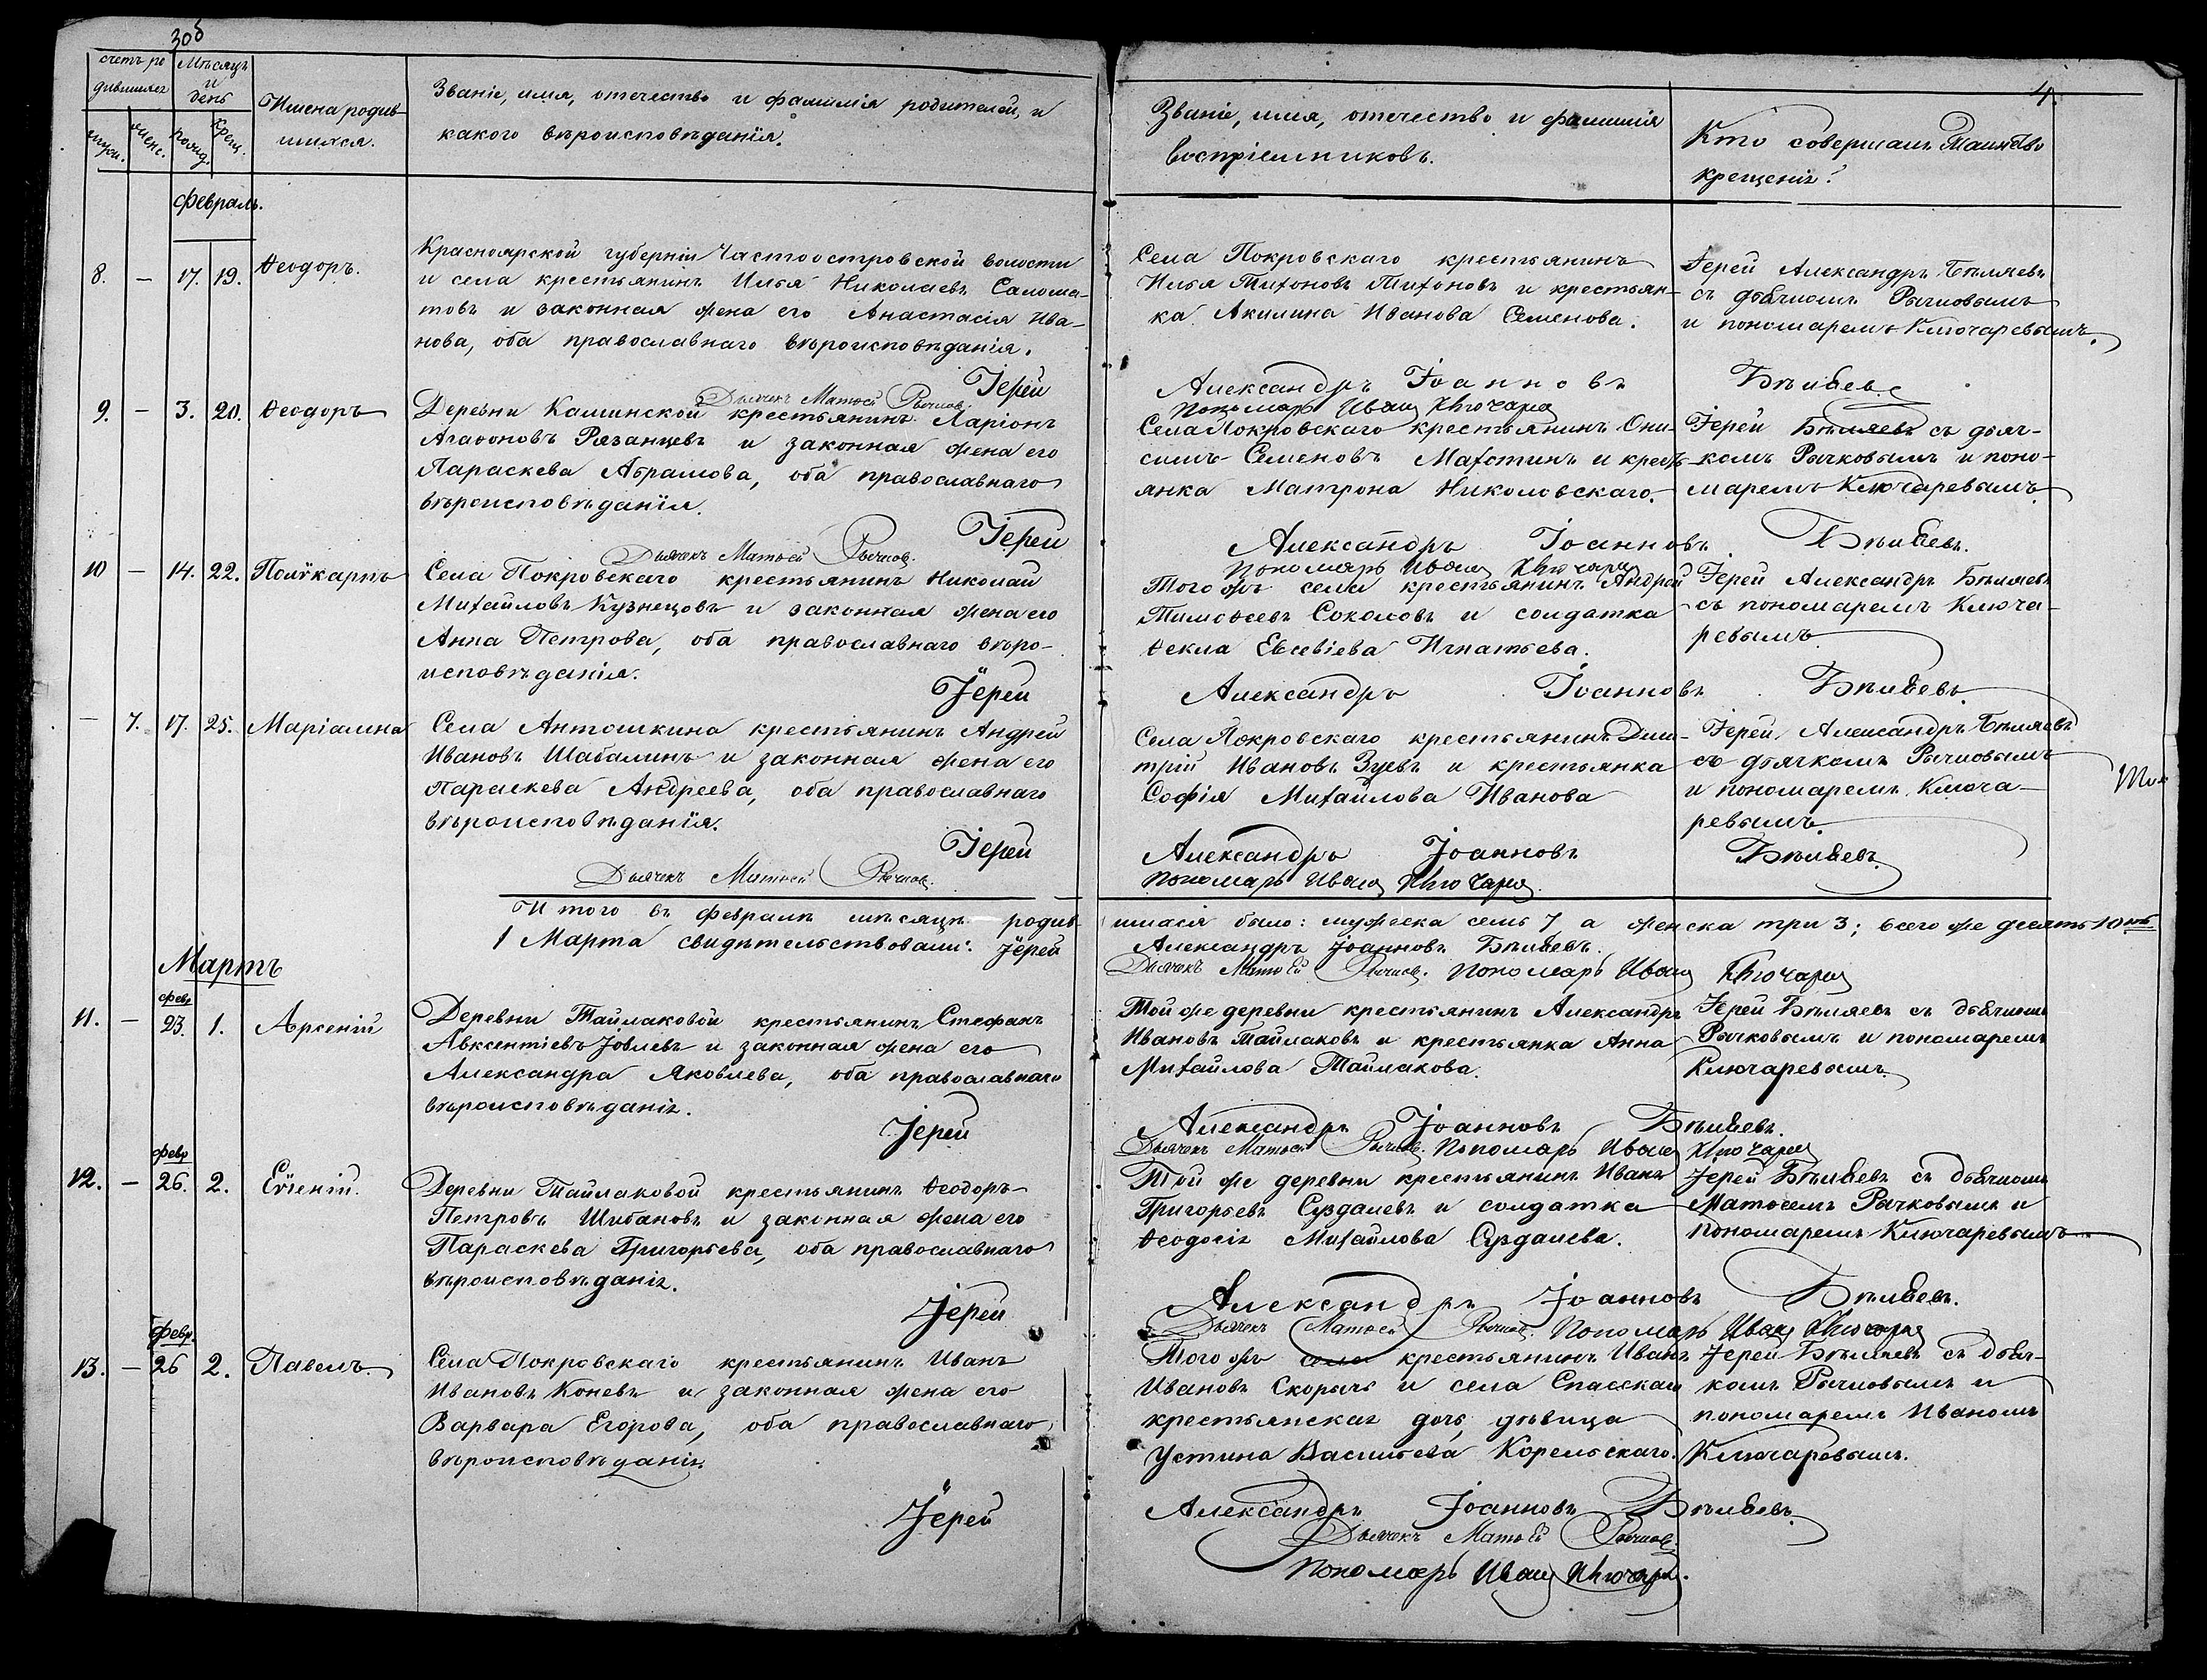 30б
счетъ ро
дившихся
Мѣсяцъ
и
день
мужс.
женс.
рожд.
крещ.
Имена родив-
шихся.
Званіе, имя, отечество и фамилія родителей, и
какого вѣроисповѣданія.
4.
Званіе, имя, отечество и фамилія
воспріемниковъ.
Кто совершалъ Таинство
крещенія?
Февраль.
8. — 17. 19. Ѳеодоръ.
Красноярской губерніи Частоостровской волости
и села крестьянинъ Илья Николаевъ Салома-
товъ и законная жена его Анастасія Ива-
нова, оба православнаго вѣроисповѣданія.
Села Покровскаго крестьянинъ
Илья Тихоновъ Тихоновъ и крестьян-
ка Акилина Иванова Семенова.
Іерей Александръ Бѣляевъ
съ дьячкомъ Рычковымъ
и пономаремъ Ключаревымъ.
Іерей Александръ Іоанновъ Бѣляевъ
Дьячекъ Матѳей Рычков.
Пономарь Иван Ключарев
9. — 3. 20. Ѳеодоръ
Деревни Каминской крестьянинъ Ларіонъ
Агаѳоновъ Рязанцевъ и законная жена его
Параскева Абрамова, оба православнаго
вѣроисповѣданія.
Села Покровскаго крестьянинъ Они-
симъ Семеновъ и кресть-
янка Матрона Николовскаго.
Іерей Бѣляевъ съ дьяч-
комъ Рычковымъ и поно-
маремъ Ключаревымъ
Іерей Александръ Іоанновъ Бѣляевъ.
Дьячекъ Матѳей Рычков.
Пономарь Иван Ключарев
10 — 14. 22. Полѵкарпъ
Села Покровскаго крестьянинъ Николай
Михайловъ Кузнецовъ и законная жена его
Анна Петрова, оба православнаго вѣро-
исповѣданія.
Того жъ села крестьянинъ Андрей
Тимоѳеевъ Соколовъ и солдатка
Ѳекла Евсевіева Игнатьева.
Іерей Александръ Бѣляевъ
съ пономаремъ Ключа-
ревымъ
Іерей Александръ Іоанновъ Бѣляевъ
— 7. 17. 25. Маріамна
Села Антошкина крестьянинъ Андрей
Ивановъ Шабалинъ и законная жена его
Параскева Андреева, оба православнаго
вѣроисповѣданія.
Села Покровскаго крестьянинъ Дми-
трій Ивановъ Зуевъ и крестьянка
Софія Михайлова Иванова
Іерей Александръ Бѣляевъ
съ дьячкомъ Рычковымъ
и пономаремъ Ключа-
ревымъ.
Іерей Александръ Іоанновъ Бѣляевъ
Дьячекъ Матѳей Рычков.
Пономарь Иван Ключарев.
Итого въ февралѣ мѣсяцѣ родив шихся было: мужеска семь 7, а женска три 3; всего же десять 10ть
1 Марта свидѣтельствовали: Іерей Александръ Іоанновъ Бѣляевъ.
Дьячекъ Матѳей Рычков. Пономарь Иван Ключарев
Мартъ
11. — февр 23. 1. Арсеній
Деревни Таймаковой крестьянинъ Стефанъ
Авксентіевъ Іовлевъ и законная жена его
Александра Яковлева, оба православнаго
вѣроисповѣданія.
Той же деревни крестьянинъ Александръ
Ивановъ Таймаковъ и крестьянка Анна
Михайлова Таймакова.
Іерей Бѣляевъ съ дьячкомъ
Рычковымъ и пономаремъ
Ключаревымъ.
Іерей Александръ Іоанновъ Бѣляевъ.
Дьячекъ Матѳей Рычков. Пономарь Иван Ключарев
12. — февр 26. 2. Евгеній.
Деревни Таймаковой крестьянинъ Ѳеодоръ
Петровъ Шибановъ и законная жена его
Параскева Григорьева, оба православнаго
вѣроисповѣданія.
Той же деревни крестьянинъ Иванъ
Григорьевъ Суздалевъ и солдатка
Ѳеодосія Михайлова Суздалева.
Іерей Бѣляевъ съ дьячкомъ
Матѳеемъ Рычковымъ и
пономаремъ Ключаревымъ
Іерей Александръ Іоанновъ Бѣляевъ.
Дьячекъ Матѳей Рычков. Пономарь Иван Ключарев
13. — февр. 26 2. Павелъ.
Села Покровскаго крестьянинъ Иванъ
Ивановъ Коневъ и законная жена его
Варвара Егорова, оба православнаго
вѣроисповѣданія.
Того жъ села крестьянинъ Иванъ
Ивановъ и села Спасскаго
крестьянская дочь, дѣвица
Устина Васильева Корельскаго.
Іерей Бѣляевъ съ дьяч-
комъ Рычковымъ и
пономаремъ Иваномъ
Ключаревымъ.
Іерей Александръ Іоанновъ Бѣляевъ
Дьячекъ Матѳей Рычков.
Пономарь Иван Ключарев.